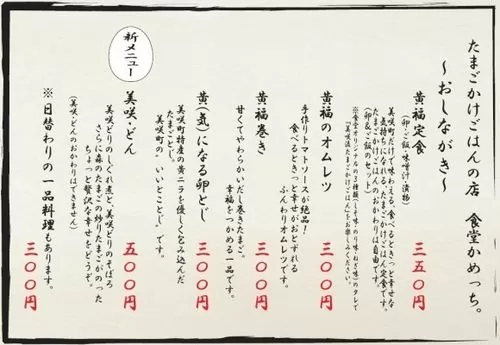 たまごかけごはんの店 食堂かめっち。
～おしながき～
黄福定食
(卵・ご飯・味噌汁・漬物)
三五〇円
美咲町だけで味わえる、食べるときっと幸せな
気持ちになれる、たまごかけごはん定食です。
たまごかけごはんのおかわりは自由です。
(卵&ご飯のセット)
※食堂オリジナルの3種類(しそ味・のり味・ねぎ味)のタレで
『美咲流たまごかけごはん』をお楽しみください。
黄福のオムレツ
三〇〇円
手作りトマトソースが絶品!
食べるときっと幸せがおとずれる
ふんわりオムレツです。
黄福巻き
三〇〇円
甘くてやわらかいだし巻きたまご。
幸福をつかめる一品です。
黄(気)になる卵とじ
三〇〇円
美咲町特産の黄ニラを優しく包み込んだ
たまごとじ。
美咲町の"いいとことじ"です。
新メニュー
美咲、どん
五〇〇円
美咲どりのくれ煮と、美咲どりのそぼろ
さらに森のたまごの炒りたまごがのった
ちょっと贅沢な幸せをどうぞ。
(美咲、どんのおかわりはできません)
※日替わりの一品料理もあります。
三〇〇円